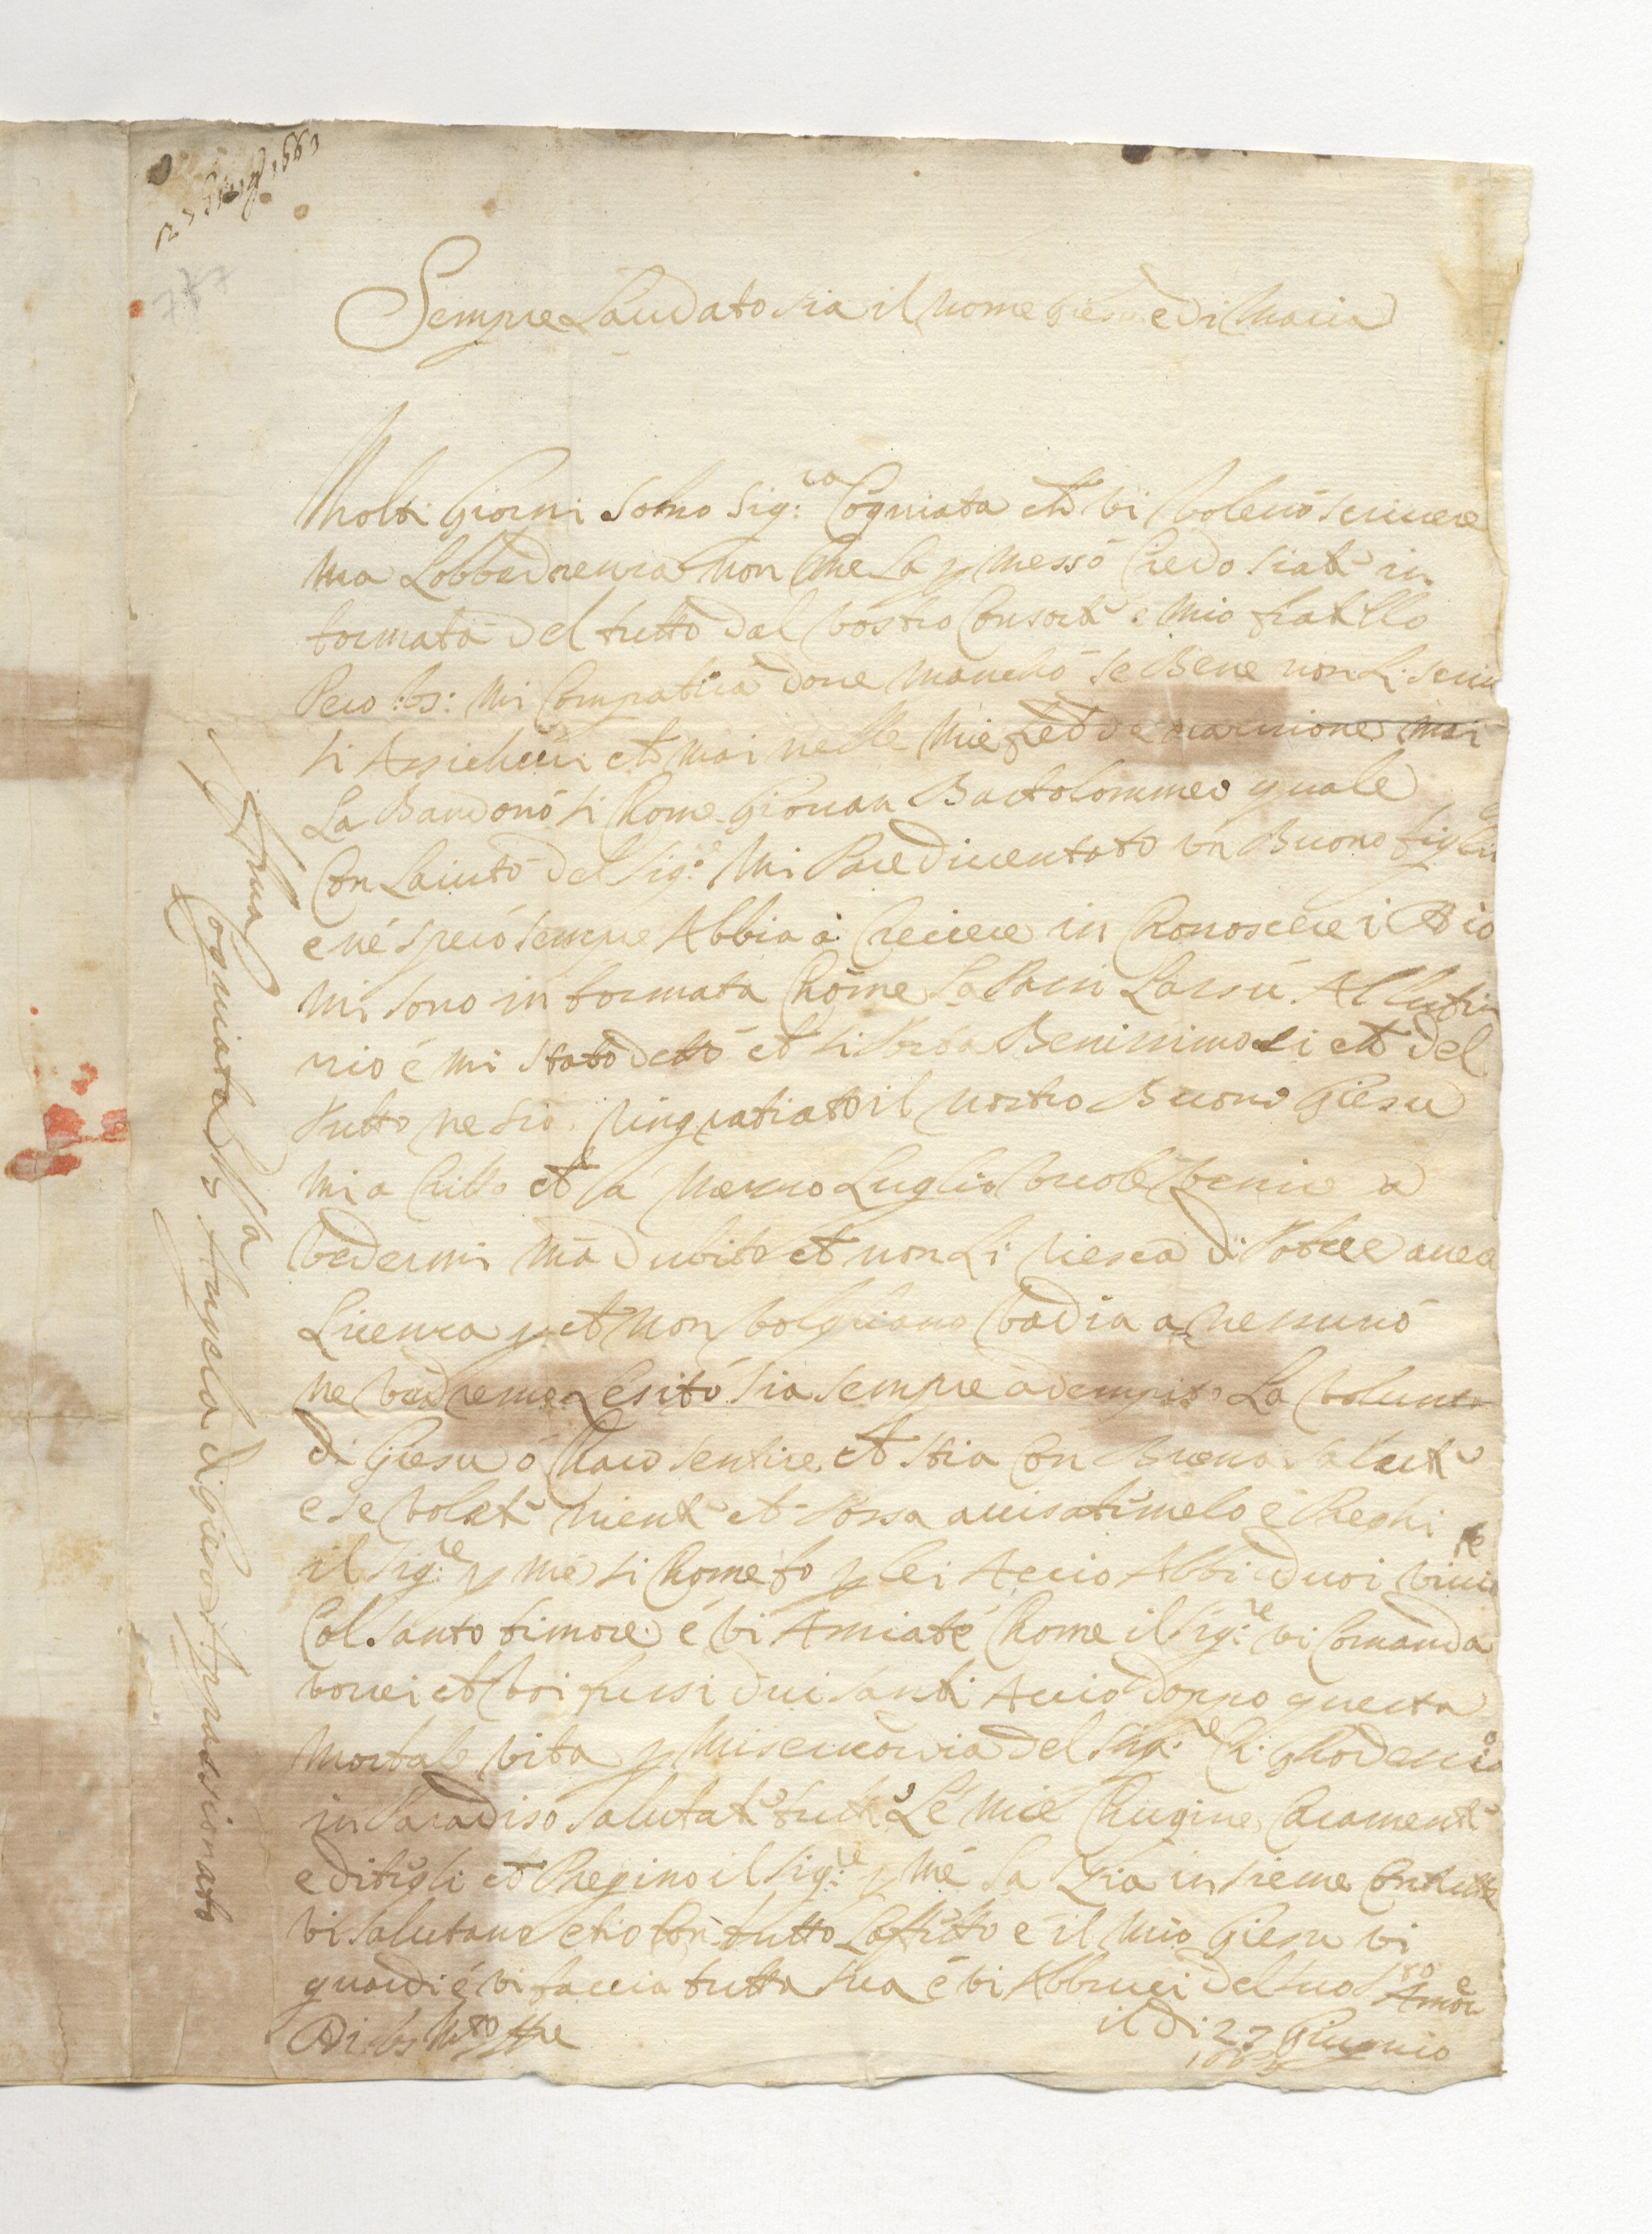 27 Giug.o 1663
Sempre Laudato sia il nome Giesu e di Maria
Molti Giorni sono Sig:ra Cogniata che vi volevo scrivere
ma Lobbedienza non me La p messo Credo siate in
formata del tutto dal vostro Consorte e mio fratello
Pero :vs: mi Compatira dove mancho se Bene non Li scriv
si Assichuri che mai nelle mie fredde orazione mai
La Bandono si Chome Giovan Bartolommeo quale
Con Laiuto del Sig:re Mi Pare diventato un Buono figlio
e ne spero sempre Abbia a Crescere in Chonoscere i Dio
mi sono in formata Chome La Passi Lassu Al
rio é mi stato detto che si Porta Benissimo di che del
tutto ne sia ringratiato il nostro Buono Giesu
mi a Critto che a mezzo Luglio vuole venire a
vedermi ma dubito che non Li riesca di Potere avea
Licenza p che non vogliano vadia a nessuno
ne vedremo Lesito sia sempre adempito La volunta
di Giesu o Charo sentire che stia Con Buona salute
e se volete niente che Possa avisatemelo e Preghi
il Sig:re p me si Chome fo p lei Accio Abbi duoi vivere
Col santo timore é vi Amiate Chome il Sig:re vi Comanda
vorrei che voi fussi dui santi Accio doppo questa
mortale vita p Misericordia del Sig:re
in Paradiso salutate tutte Le mie Chugine Caramente
e ditegli che Preghino il Sig:re p me La Zia in sieme Con tutte
vi salutano et io Con tutto Laffetto e il mio Giesu vi
guardi é vi faccia tutta sua é vi Abbruci del suo S.to Amore
Di vs
il di 27 Giugnio
1663
Cogniata Angela di Giesu Appassionato